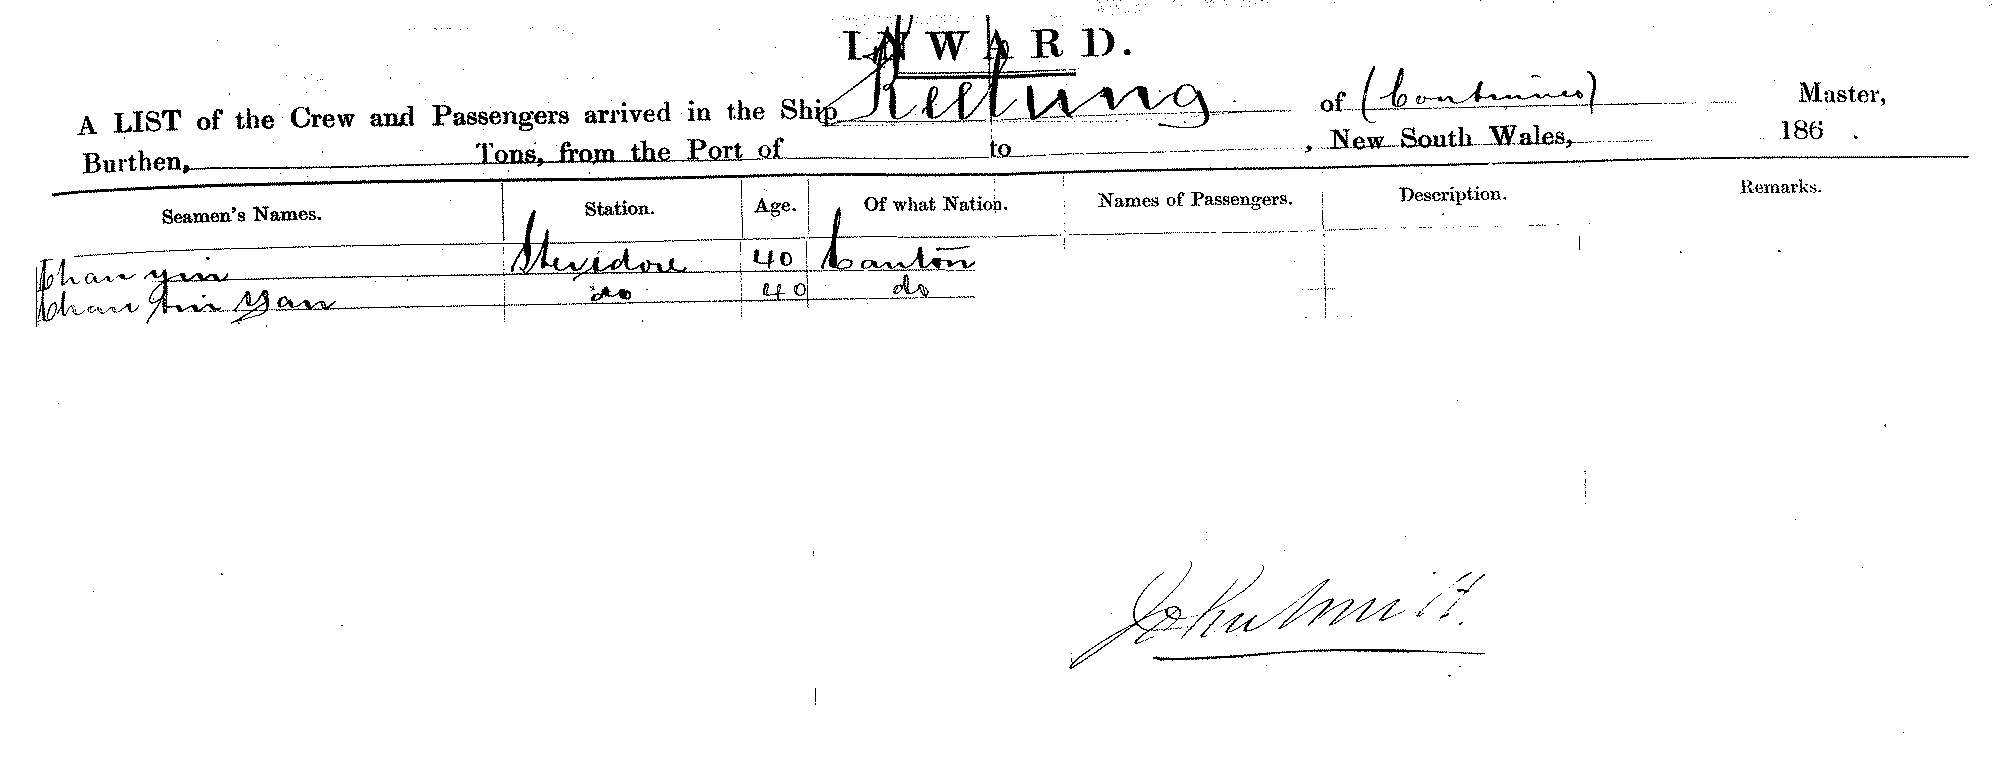 INWARD.
A LIST of the Crew and Passengers arrived in the Ship Keelung of (Continued) Master,
Burthen, Tons, from the Port of to , New South Wales, 186 .
Seamen's Names. Station. Age. Of what Nation. Names of Passengers. Description. Remarks.
Chan yin Stevedore 40 Canton
Chan Yan do 40 do
Smith.